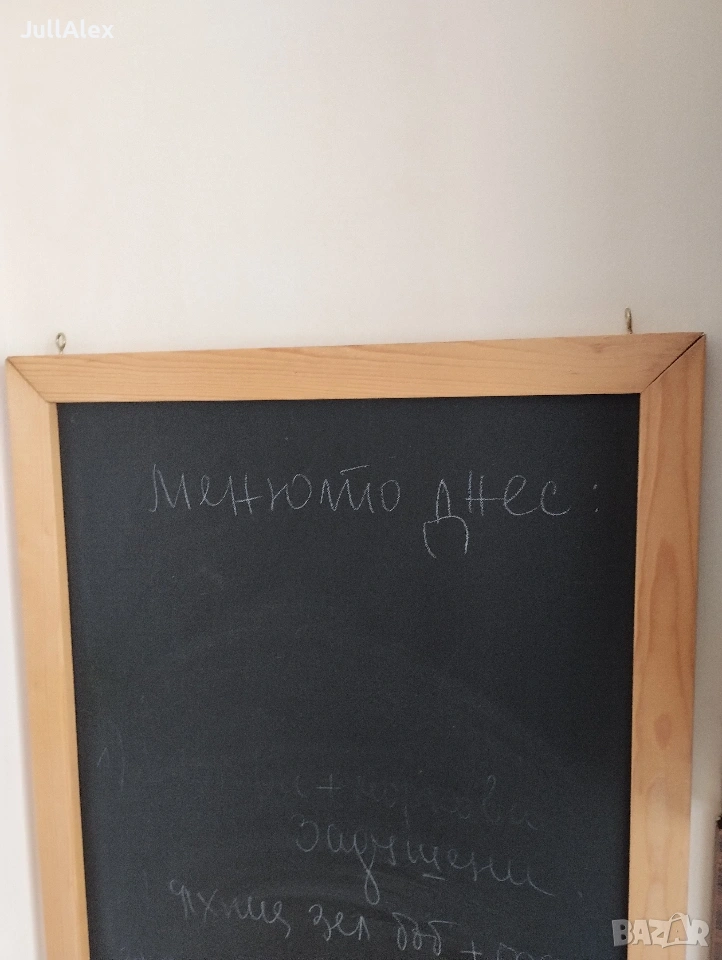 JullAlex
Менюто днес:
1)
+ моркови
задушени
яхния зел боб +
BAZAR